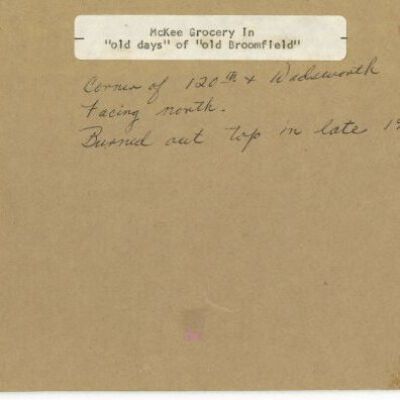 McKee Grocery In
"old days" of "old Broomfield"
Corner of 120th & Wadsworth
facing north.
Burned out top in late 19